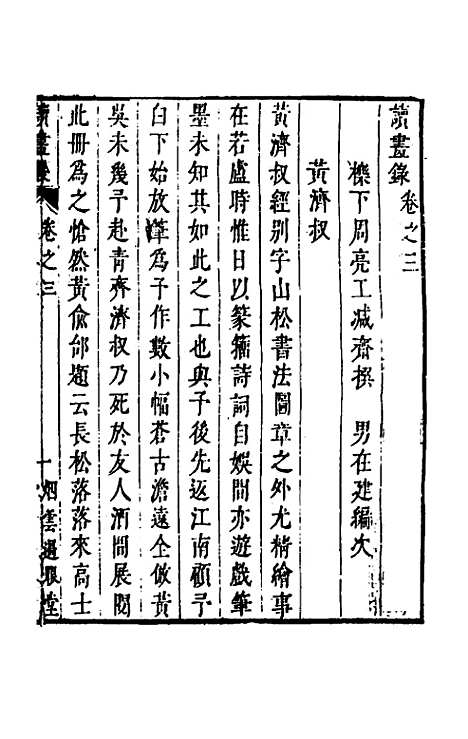 讀畫錄卷之三
櫟下周亮工減齋撰　男在建編次
黃濟叔
黃濟叔經別字山松書法圖章之外尤精繪事
在若盧時惟日以篆籀詩詞自娛間亦遊戲筆
墨未知其如此之工也與予後先返江南顧予
白下始放筆爲予作數小幅蒼古澹遠全倣黃
吳未幾予赴青齊濟叔乃死於友人酒間展閱
此冊爲之愴然黃俞邰題云長松落落來高士
讀畫錄　卷之三　一　烟雲過眼堂